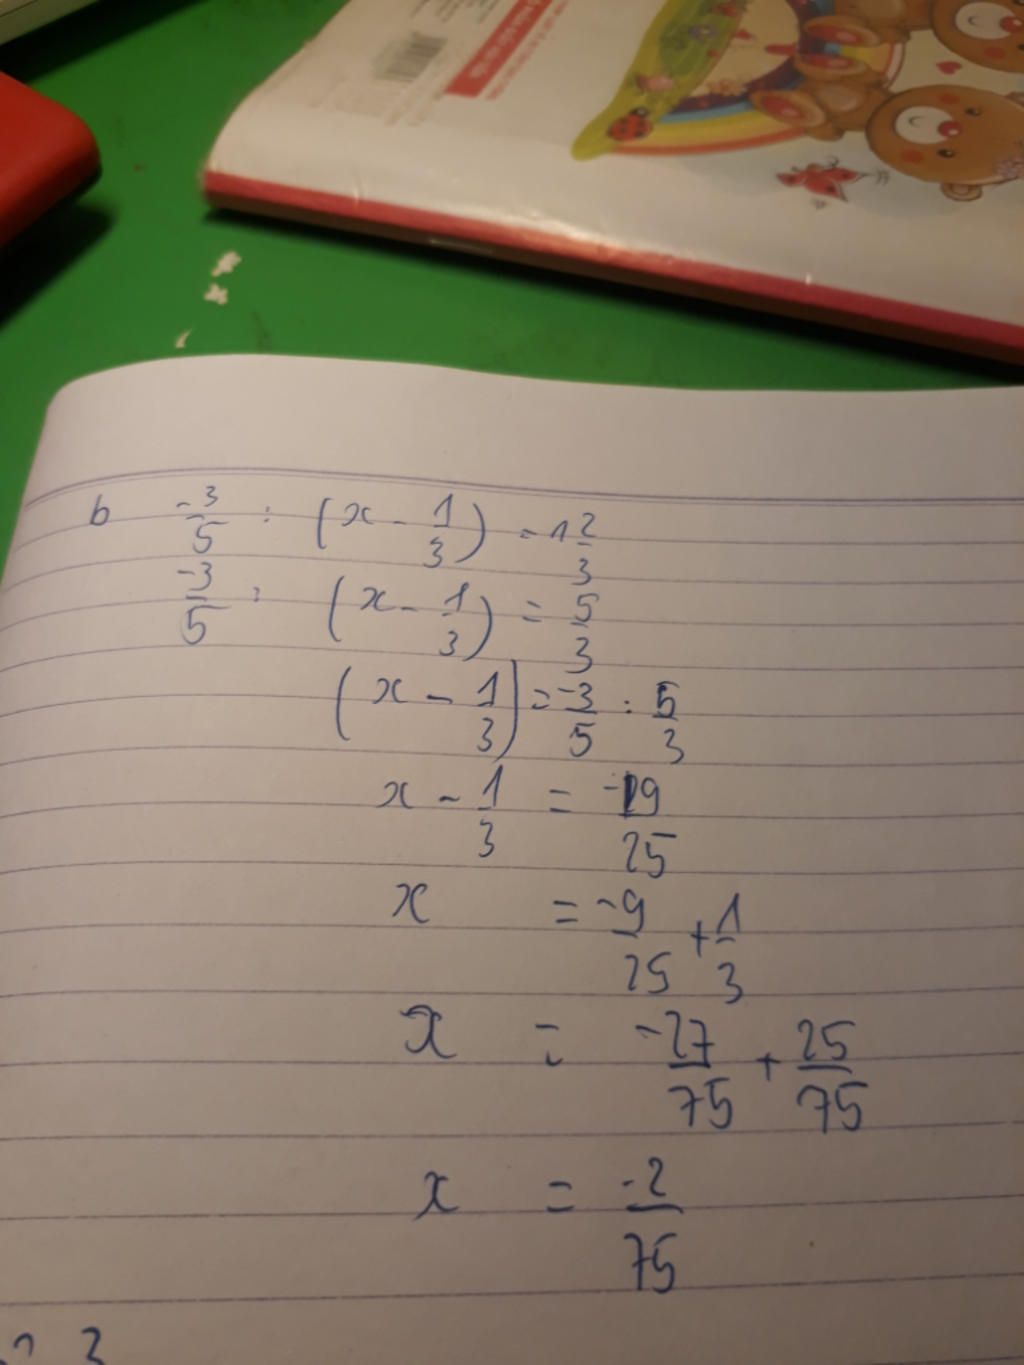 b -3/5 : (x - 1/3) = 1 2/3
-3/5 : (x - 1/3) = 5/3
(x - 1/3) = -3/5 : 5/3
x - 1/3 = -9/25
x = -9/25 + 1/3
x = -27/75 + 25/75
x = -2/75